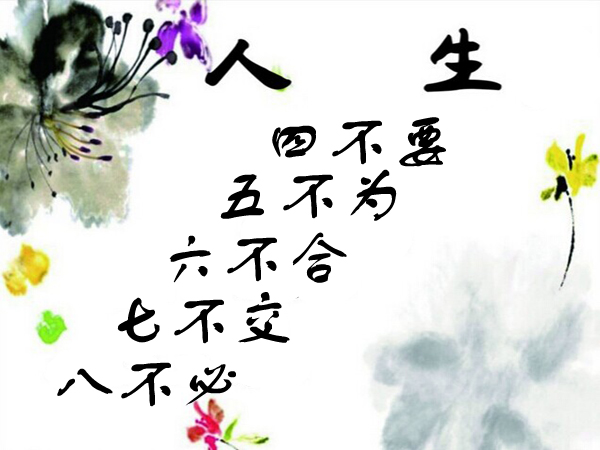 人生
四不要
五不为
六不合
七不交
八不必